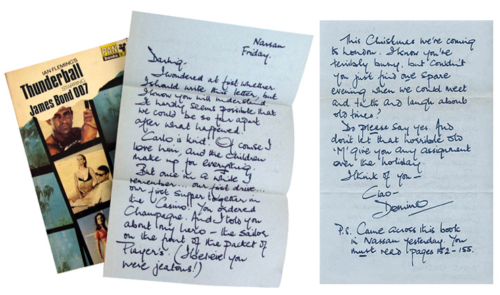 PAN
IAN FLEMING'S
Thunderball
JAMES BOND 007
Nassau
Friday.
Darling,
I wondered at first whether
I should write this letter, but
I know you will understand.
It hardly seems possible that
we could be so far apart
after what happened.
Carlo is kind. Of course I
love him, and the children
make up for everything.
But once in a while I
remember... our first drive...
our first supper together in
the Casino. You ordered
Champagne. And I told you
about my hero - the sailor
on the front of the packet of
Player's. (I believe you
were jealous!)
This Christmas we're coming
to London. I know you're
terribly busy, but couldn't
you just find one spare
evening when we could meet
and talk and laugh about
old times?
Do please say yes. And
don't let that horrible old
'M' give you any assignment
over the holiday.
I think of you -
Ciao -
Domino
P.S. Came across this book
in Nassau yesterday. You
must read pages 152-155.